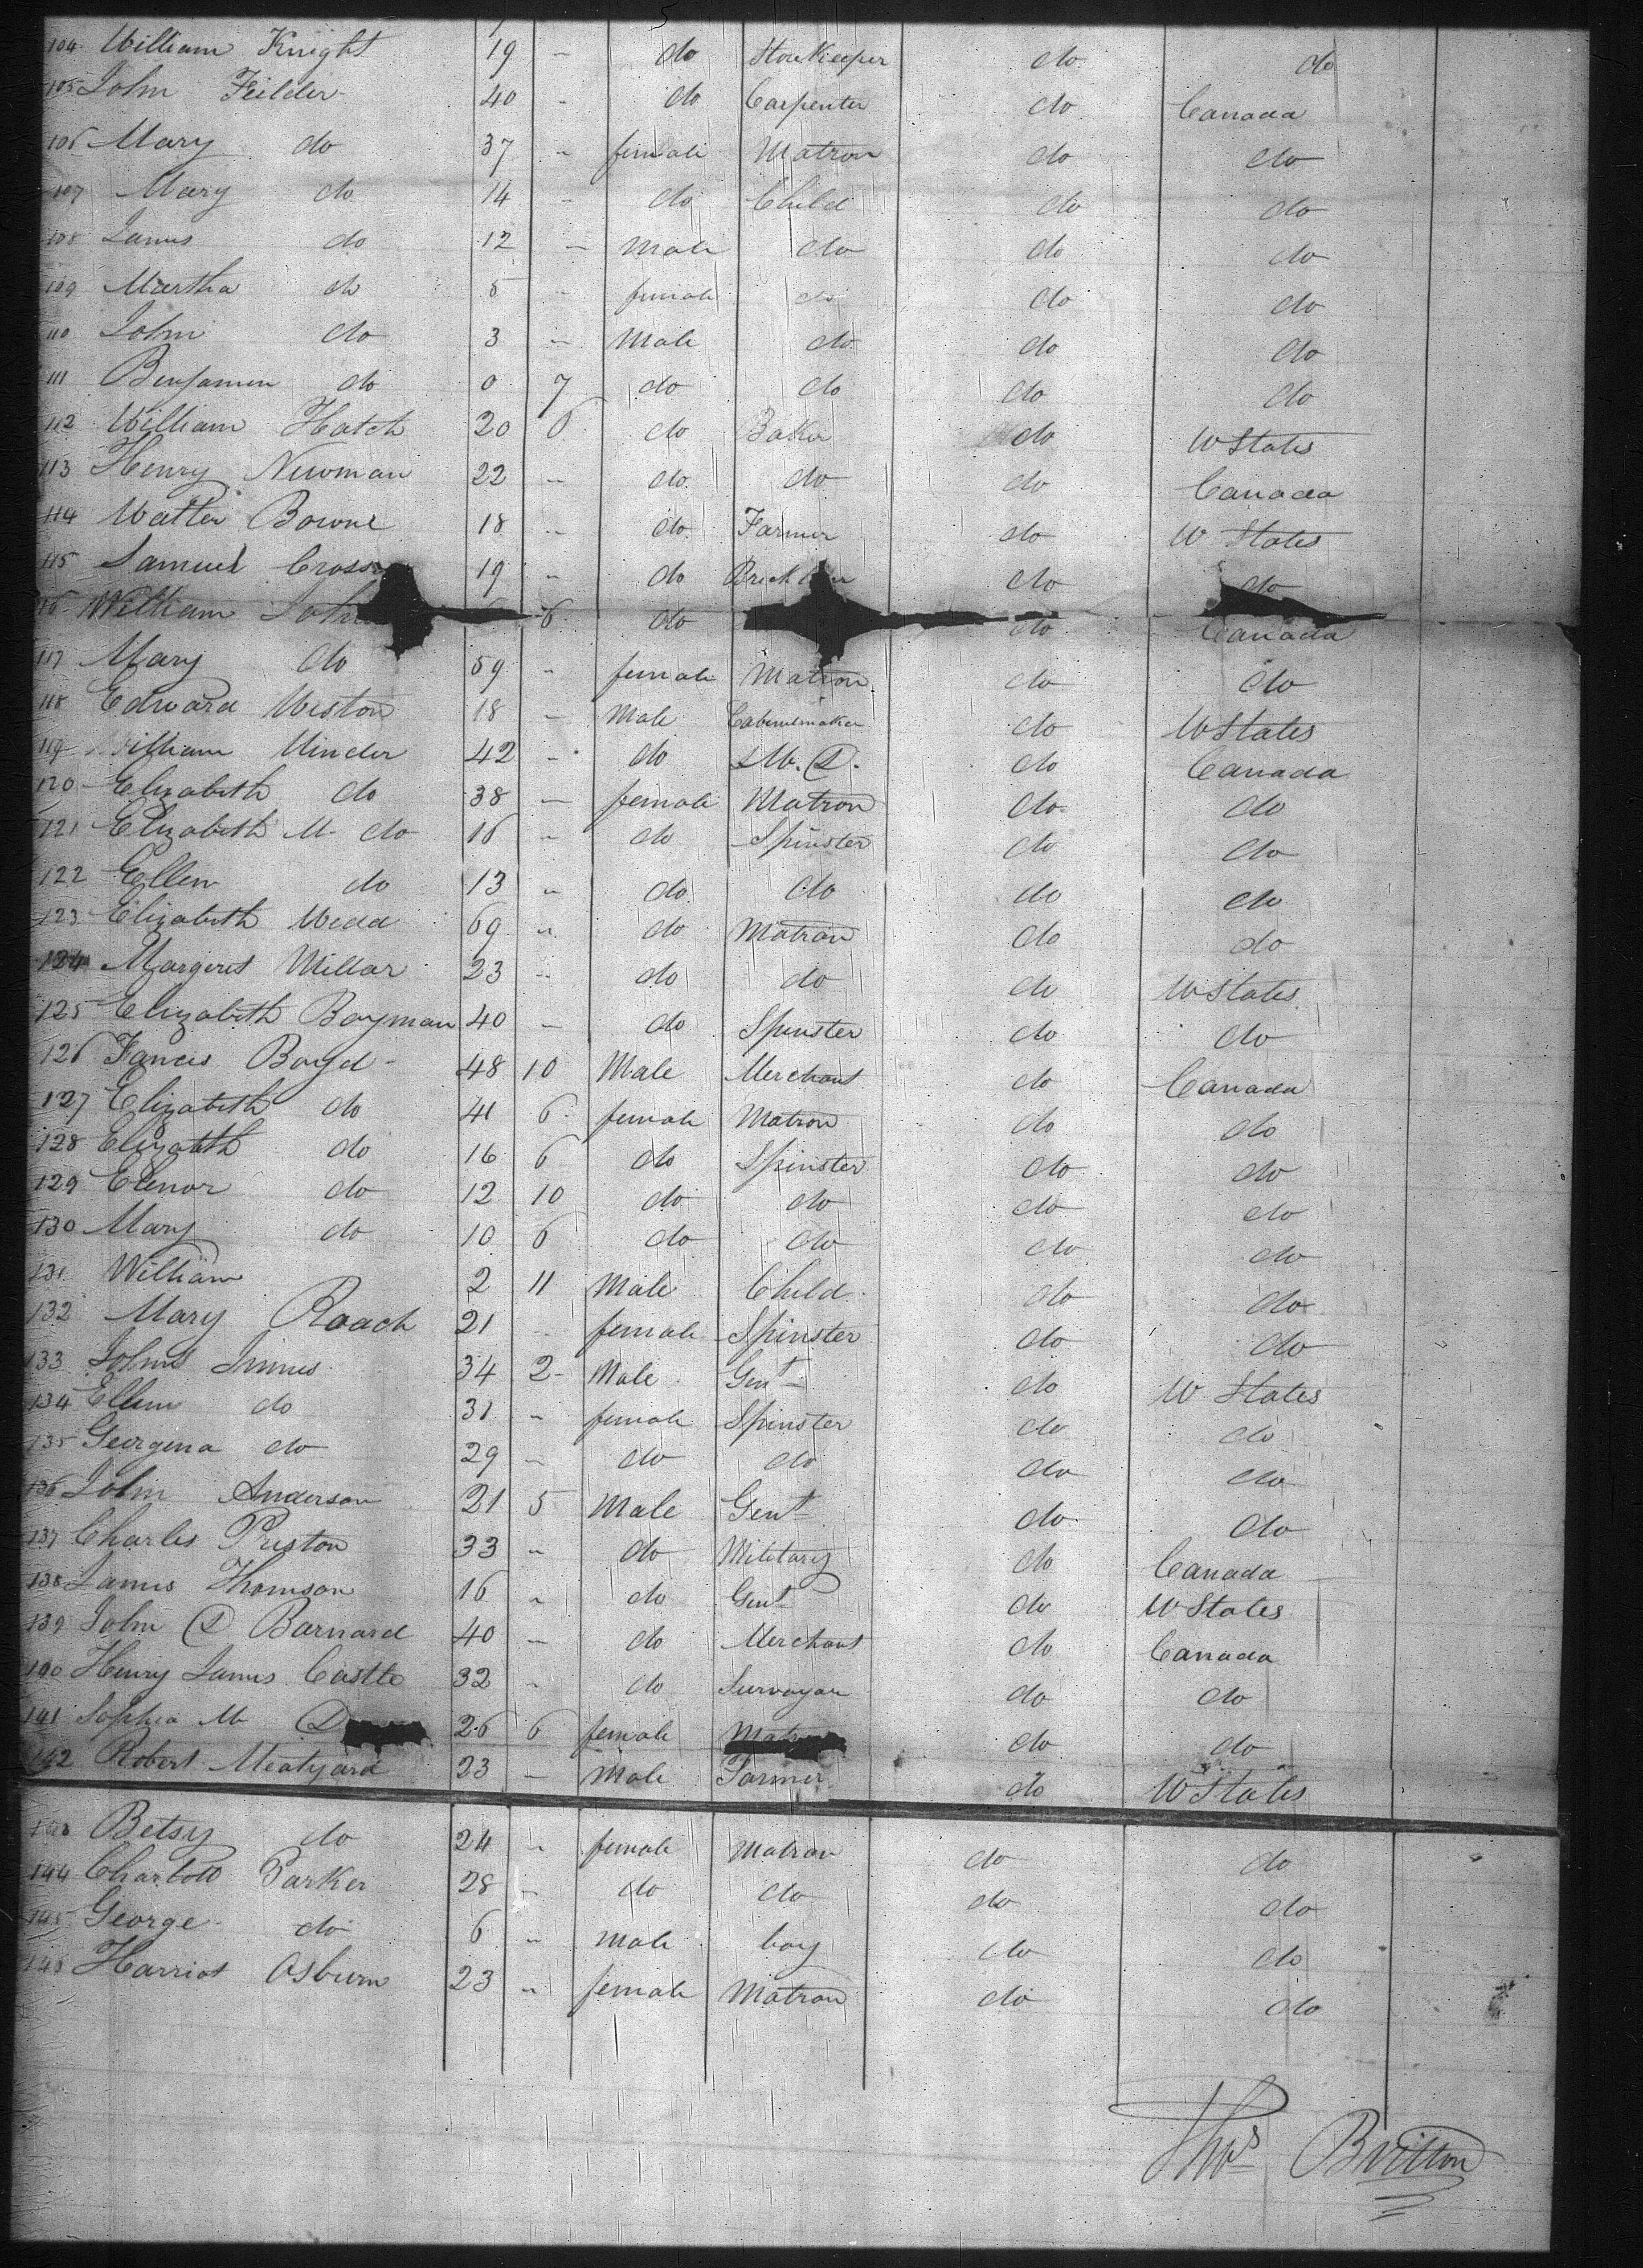 5
104 William Knight 19 - do Storekeeper do do
105 John Feilder 40 - do Carpenter do Canada
106 Mary do 37 - female Matron do do
107 Mary do 14 - do Child do do
108 James do 12 - Male do do do
109 Martha do 5 - female do do do
110 John do 3 - Male do do do
111 Benjamin do 0 7 do do do do
112 William Hatch 20 6 do Baker do W States
113 Henry Newman 22 - do do do Canada
114 Walter Bowne 18 - do Farmer do W States
115 Samuel Cross 19 - do Brick do do
116 William John 6 do do Canada
117 Mary do 59 - female Matron do do
118 Edward Weston 18 - Male Cabinetmaker do W States
119 William Minder 42 - do M. D. do Canada
120 Elizabeth do 38 - female Matron do do
121 Elizabeth M do 16 - do Spinster do do
122 Ellen do 13 - do do do do
123 Elizabeth Weda 69 - do Matron do do
124 Margeret Millar 23 - do do do W States
125 Elizabeth Bayman 40 - do Spinster do do
126 Fances Boyd 48 10 Male Merchant do Canada
127 Elizabeth do 41 6 female Matron do do
128 Elizabeth do 16 6 do Spinster do do
129 Elenor do 12 10 do do do do
130 Mary do 10 6 do do do do
131 William 2 11 Male Child do do
132 Mary Roach 21 - female Spinster do do
133 John Innes 34 2 Male Gent do W States
134 Ellen do 31 - female Spinster do do
135 Georgena do 29 - do do do do
136 John Anderson 21 5 Male Gent do do
137 Charles Preston 33 - do Military do Canada
138 James Thomson 16 - do Gent do W States
139 John D Barnard 40 - do Merchant do Canada
140 Henry James Castle 32 - do Survayar do do
141 Sophia M D 26 6 female Matron do do
142 Robert Meatyard 23 - Male Farmer do W States
143 Betsy do 24 - female Matron do do
144 Charlott Parker 28 - do do do do
145 George do 6 - male boy do do
146 Harriot Osburn 23 - female Matron do do
Thos Britton